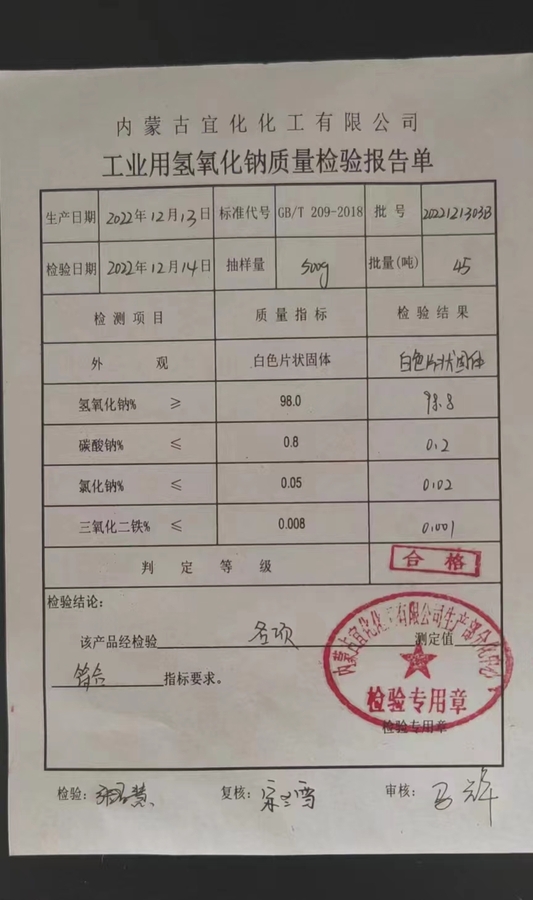 内蒙古宜化化工有限公司
工业用氢氧化钠质量检验报告单
生产日期 2022年12月13日 标准代号 GB/T 209-2018 批号 2022121303B
检验日期 2022年12月14日 抽样量 500g 批量(吨) 45
检测项目 质量指标 检验结果
外观 白色片状固体 白色片状固体
氢氧化钠% ≥ 98.0 98.8
碳酸钠% ≤ 0.8 0.2
氯化钠% ≤ 0.05 0.02
三氧化二铁% ≤ 0.008 0.001
判定等级 合格
检验结论:
该产品经检验 各项 测定值
符合 指标要求。
内蒙古宜化化工有限公司生产部分化中心
检验专用章
检验专用章
检验: 复核: 审核: